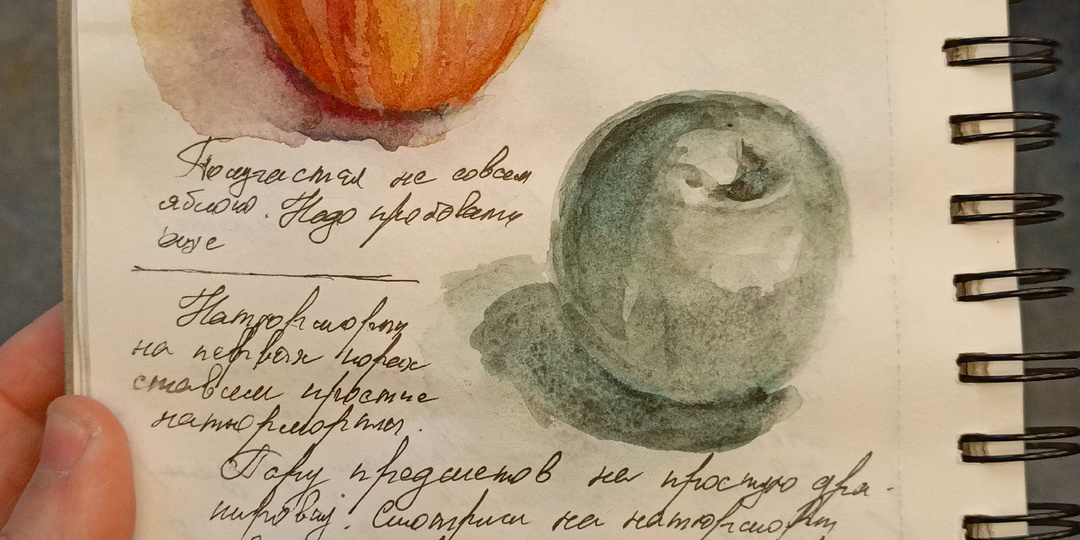 Получается не совсем
яблоко. Надо пробовать
еще
Натюрморты
на первых порах
ставим простые
натюрморты.
Пару предметов на простую дра-
пировку. Смотрим на натюрморт